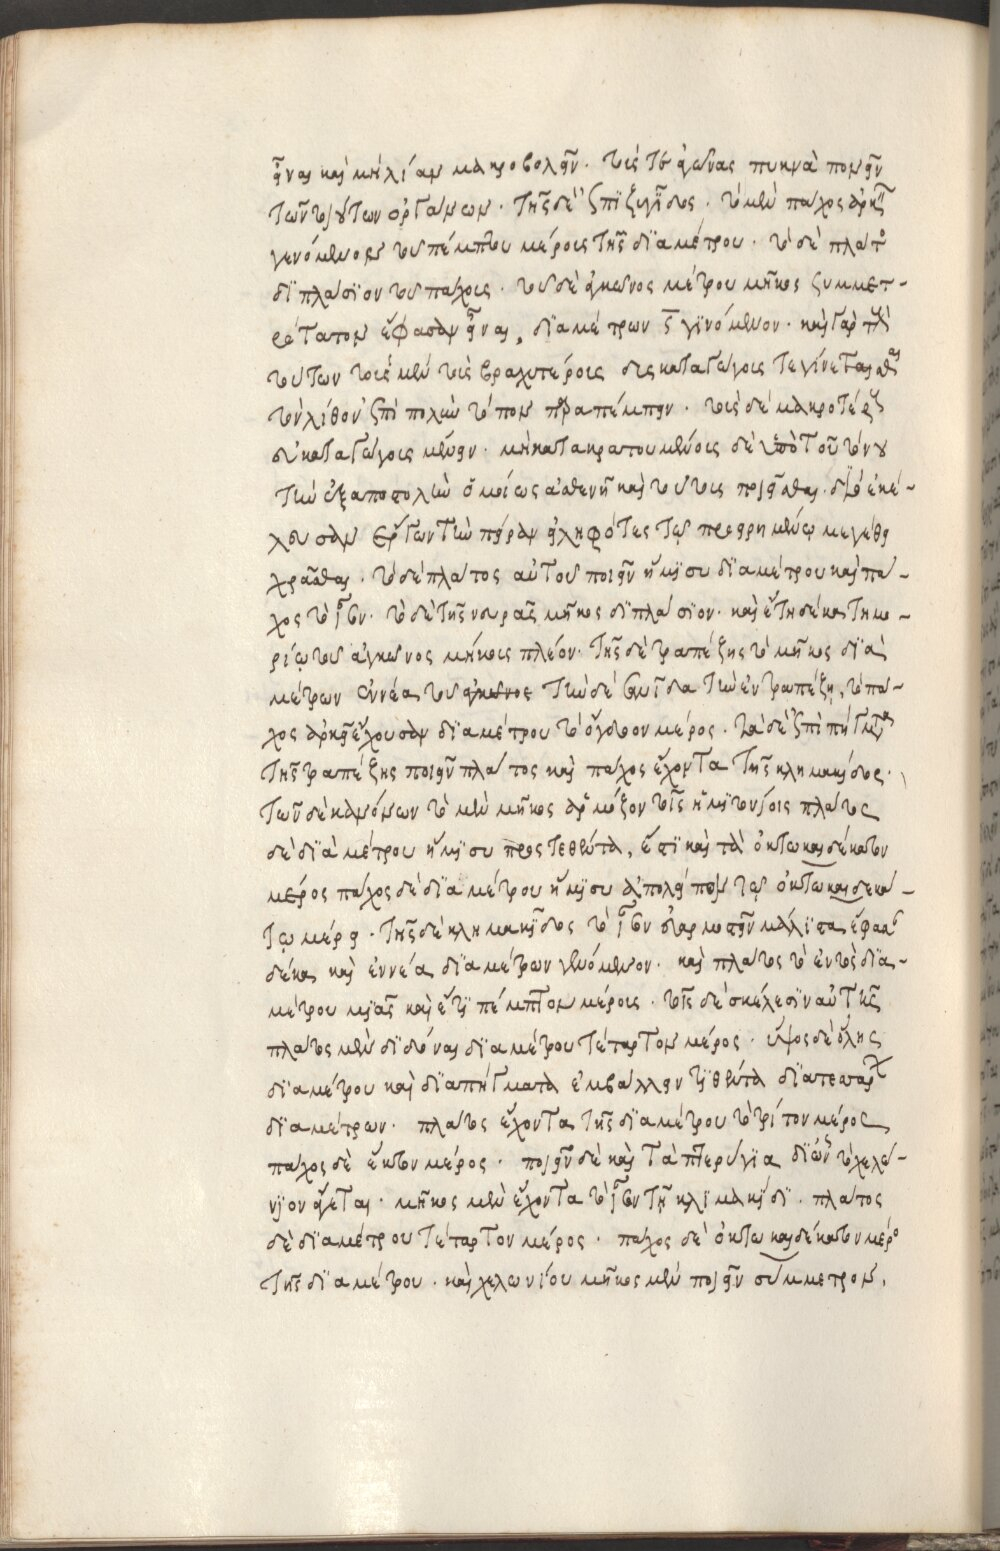 εἶναι καὶ μὴ λίαν μακροβολεῖν. τοὺς δ' ἀγκῶνας πυκνὰ ποιεῖν
τῶν τοιούτων ὀργάνων. τῆς δὲ ἐπιζυγίδος. τὸ μὲν πάχος ἀρκεῖ
γενόμενον τοῦ πέμπτου μέρους τῆς διαμέτρου. τὸ δὲ πλάτος
διπλάσιον τοῦ πάχους. τοῦ δὲ ἀγκῶνος μέτρου μῆκος συμμετ-
ρότατον ἔφασαν εἶναι, διαμέτρων ϛ γινόμενον. καὶ γὰρ
τούτων τοῖς μὲν τοῖς βραχυτέροις δυσκαταγώγοις τε γίνεται
τὸν λίθον ἐπὶ πολὺν τόπον παραπέμπειν. τοῖς δὲ μακροτέροις
εὐκαταγώγοις μὲν. μὴ κατακρατουμένοις δὲ ὑπὸ τοῦ τόνου
τὴν ἐξαποστολὴν ὁμοίως ἀσθενῆ καὶ τούτοις ποιεῖσθαι. διὸ ἐκέ-
λευσαν ἐξ αὐτῶν τὴν πεῖραν εἰληφότες τῷ προειρημένῳ μεγέθει
χρᾶσθαι. τὸ δὲ πλάτος αὐτοῦ ποιεῖν ἥμισυ διαμέτρου καὶ πά-
χος τὸ ἴσον. τὸ δὲ τῆς νευρᾶς μῆκος διπλάσιον. καὶ ἔτι δεκατημο-
ρίῳ τοῦ ἀγκῶνος μήκους πλέον. τῆς δὲ τραπέζης τὸ μῆκος δια
μέτρων ἐννέα τοῦ ἀγκῶνος τὴν δὲ σανίδα τὴν ἐν τραπέζῃ, τὸ πά-
χος ἀρκεῖ ἔχουσαν διαμέτρου τὸ ὄγδοον μέρος. τὰ δὲ ἐπιπήγματα
τῆς τραπέζης ποιεῖν πλάτος καὶ πάχος ἔχοντα τῆς κλιμακίδος.
τῶν δὲ κανόνων τὸ μὲν μῆκος ἁρμόζον τοῖς ἡμιτονίοις πλάτος
δὲ διαμέτρου ἥμισυ προστεθέντα, ἔτι καὶ τὰ ὀκτωκαιδέκατον
μέρος πάχος δὲ διαμέτρου ἥμισυ ἀπολεῖπον τῷ ὀκτωκαιδεκά-
τῳ μέρει. τῆς δὲ κλιμακίδος τὸ ἴσον διαρμοστεῖν μάλιστα ἔφασαν
δέκα καὶ ἐννέα διαμέτρων γενόμενον. καὶ πλάτος τὸ ἐντὸς δια-
μέτρου μιᾶς καὶ ἔτι πέμπτου μέρους. τοῖς δὲ σκέλεσιν αὐτῆς
πλάτος μὲν διδόναι διαμέτρου τέταρτον μέρος. ὕψος δὲ ὅλης
διαμέτρου καὶ διαπήγματα ἐμβάλλειν τιθέντα διὰ τεσσάρων
διαμέτρων. πλάτος ἔχοντα τῆς διαμέτρου τὸ τρίτον μέρος
πάχος δὲ ἕκτον μέρος. ποιεῖν δὲ καὶ τὰ πτερύγια δι' ὧν τὸ χελώ-
νιον ἄγεται. μῆκος μὲν ἔχοντα τὸ ἴσον τῇ κλιμακίδι. πλάτος
δὲ διαμέτρου τέταρτον μέρος. πάχος δὲ ὀκτωκαιδέκατον μέρος
τῆς διαμέτρου. καὶ χελωνίου μῆκος μὲν ποιεῖν σύμμετρον,